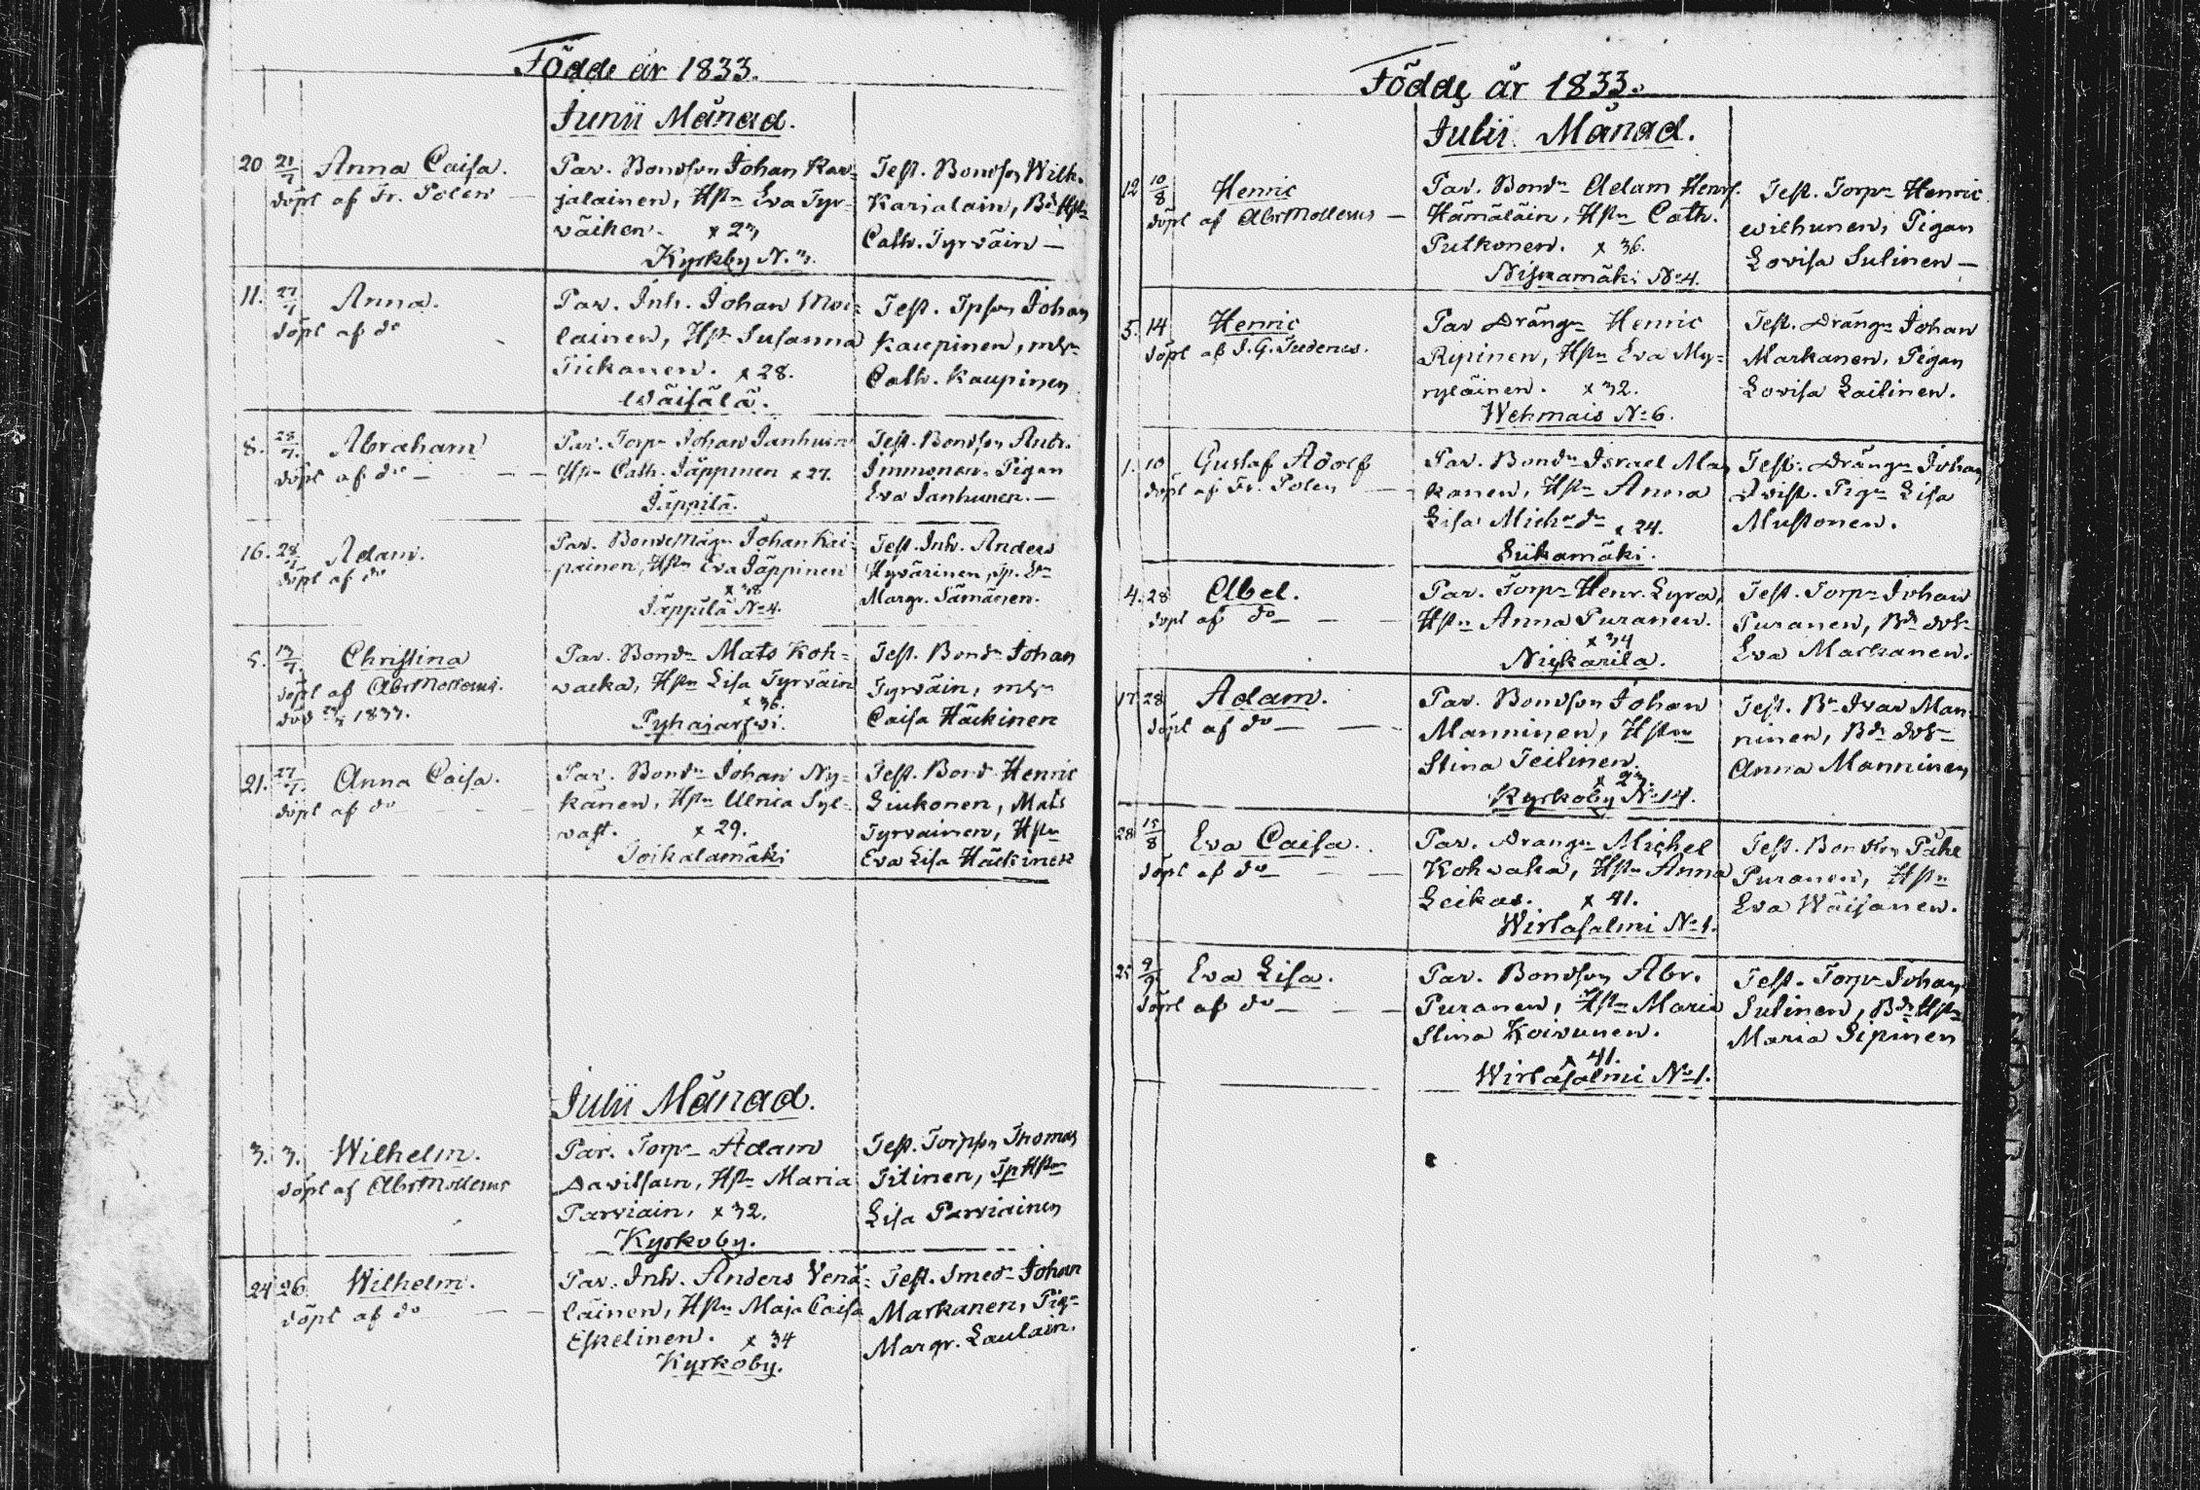 Födde år 1833.
Junii Månad.
20 21/7 Anna Caisa.
döpt af Fr. Polen —
Par. Bondson Johan Kar=
jalainen, Hstn Eva Tyr=
väinen. x 23
Kyrkby N. 3.
Test. Bondson Wilh.
Karjalain, Bd Hstn
Cath. Tyrväin —
11. 27/7 Anna.
döpt af do
Par. Inh. Johan Moi=
lainen, Hstn Susanna
Tiikanen. x 28.
Wäisälä.
Test. Tpson Johan
Kaupinen, m
Cath. Kaupinen
8. 28/7. Abraham
döpt af do — — —
Par. Torpn Johan Janhuin
Hstn Cath. Jäppinen x 27.
Jäppilä.
Test. Bondson Antr.
Immonen. Pigan
Eva Janhunen. —
16. 28/7 Adam.
döpt af do
Par. Bondemågn Johan Kai=
painen, Hstn Eva Jäppinen
x 38
Jäppilä No 4.
Test. Inh. Anders
Hyvärinen, Tp. Dr
Margr. Sämänen.
5. 13/7. Christina
döpt af Abr Mollerus.
död 1833.
Par. Bondn Mats Koh=
wacka, Hstn Lisa Tyrväin
x 36.
Pyhajarfwi.
Test. Bondn Johan
Tyrväin, m
Caisa Häckinen
21. 27/7. Anna Caisa.
döpt af do — — —
Par. Bondn Johan Ny=
känen, Hstn Ulrica Syl=
wast. x 29.
Toikalamäki
Test. Bond Henric
Liukonen, Mats
Tyrvainen, Hstn
Eva Lisa Häckinen
Julii Månad.
3. 3. Wilhelm.
döpt af Abr Mollerus
Par. Torpn Adam
Davidsain, Hstn Maria
Parviain, x 32.
Kyrkoby.
Test. Torpson Thomas
Titinen, Tp Hstn
Lisa Parviainen
24 26 Wilhelm.
döpt af do — —
Par. Inh. Anders Venä=
läinen, Hstn Maja Caisa
Eskelinen. x 34
Kyrkoby.
Test. Smedn Johan
Markanen, Pign
Margr. Laulain.
Födde år 1833.
Julii Månad.
12 10/8 Henric
döpt af Abr Mollerus —
Par. Bondn Adam Henr.
Hämäläin, Hstn Cath.
Pulkonen. x 36.
Niskamäki No 4.
Test. Torpn Henric
Wilhunen, Pigan
Lovisa Sulinen —
5. 14 Henric
döpt af J. G.
Par Drängn Henric
Ripinen, Hstn Eva My=
ryläinen. x 32.
Wehmais No 6.
Test. Drängn Johan
Markanen, Pigan
Lovisa Lailinen.
1. 10 Gustaf Adolf
döpt af Fr. Polen —
Par. Bondn Israel Mar
kanen, Hstn Anna
Lisa Michsdr x 24.
Liikamäki.
Test. Drängn Johan
Qvist. Pign Lisa
Mustonen.
4. 28 Abel.
döpt af do — — —
Par. Torpn Henr. Lyra,
Hstn Anna Puranen.
x 34
Nickarila.
Test. Torpn Johan
Puranen, Bd dotr
Eva Markanen.
17. 28 Adam.
döpt af do — — —
Par. Bondson Johan
Manninen, Hstn
Stina Teitinen.
x 23.
Kyrkoby No 14.
Test. Bn Ivar Man=
ninen, Bd dotr
Anna Manninen
28 15/8 Eva Caisa.
döpt af do — — —
Par. Drängn Michel
Kohvaka, Hstn Anna
Leikas. x 41.
Wirtasalmi No 1.
Test. Bondson Påhl
Puranen, Hstn
Eva Wäisänen.
25 9/9 Eva Lisa.
döpt af do — — —
Par. Bondson Abr.
Puranen, Hstn Maria
Stina Koivunen.
x 41.
Wirtasalmi No 1.
Test. Torpn Johan
Sutinen, Bd Hstn
Maria Sipinen